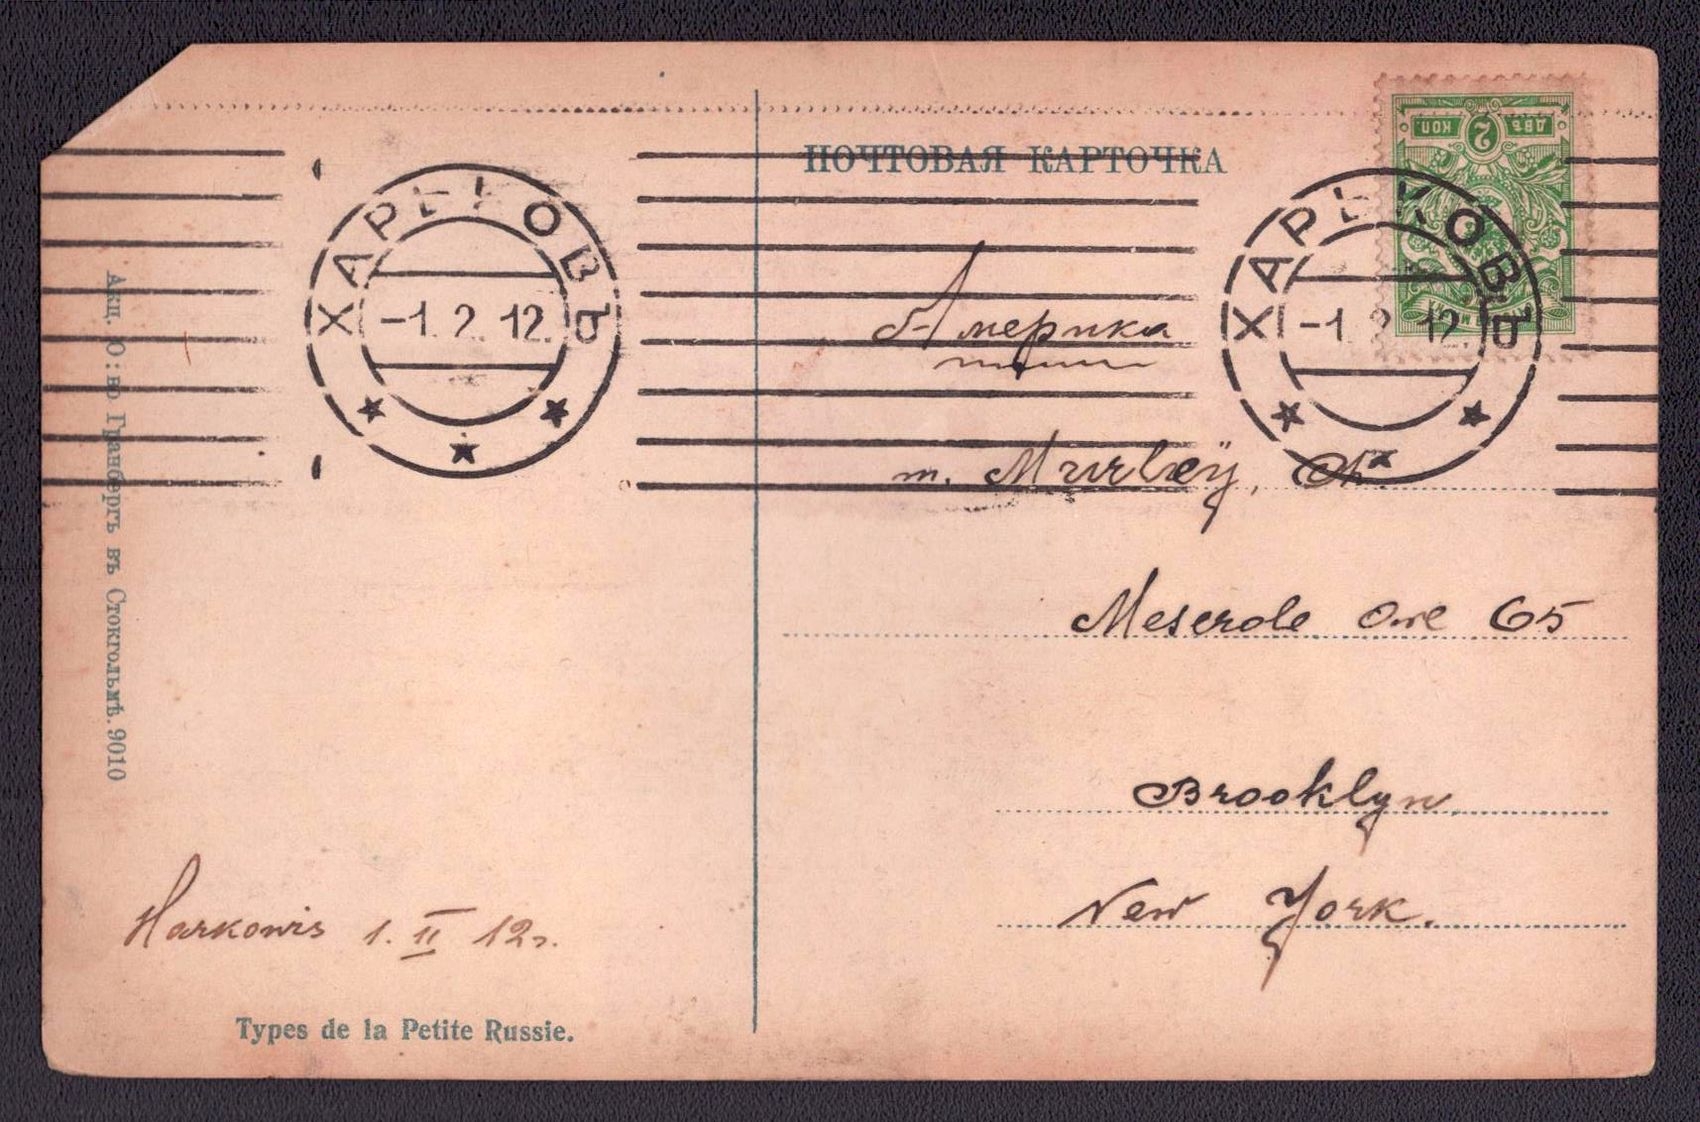 ПОЧТОВАЯ КАРТОЧКА
ДВѢ 2 КОП
ХАРЬКОВЪ
-1.2.12.
ХАРЬКОВЪ
-1.2.12.
Америка
Meserole Ave 65
Brooklyn
New York.
Акц. О:во Гранбергъ въ Стокгольмѣ. 9010
1. II 12г.
Types de la Petite Russie.